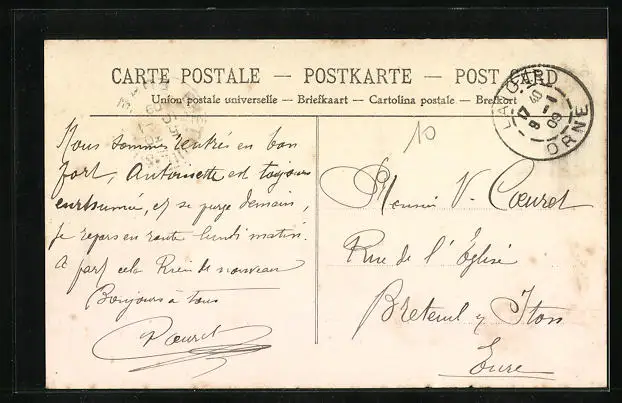 CARTE POSTALE — POSTKARTE — POST CARD
Union postale universelle — Briefkaart — Cartolina postale — Brefkort
10
ORNE
17 40
9 -1
09
Nous sommes rentrés en bon
port, Antoinette est toujours
enrhumée, et se purge demain,
Je repars en route lundi matin.
A part cela Rien de nouveau
Bonjours à tous
Cœuret
Monsieur V. Cœuret
Rue de l'Église
Breteuil s/ Iton
Eure